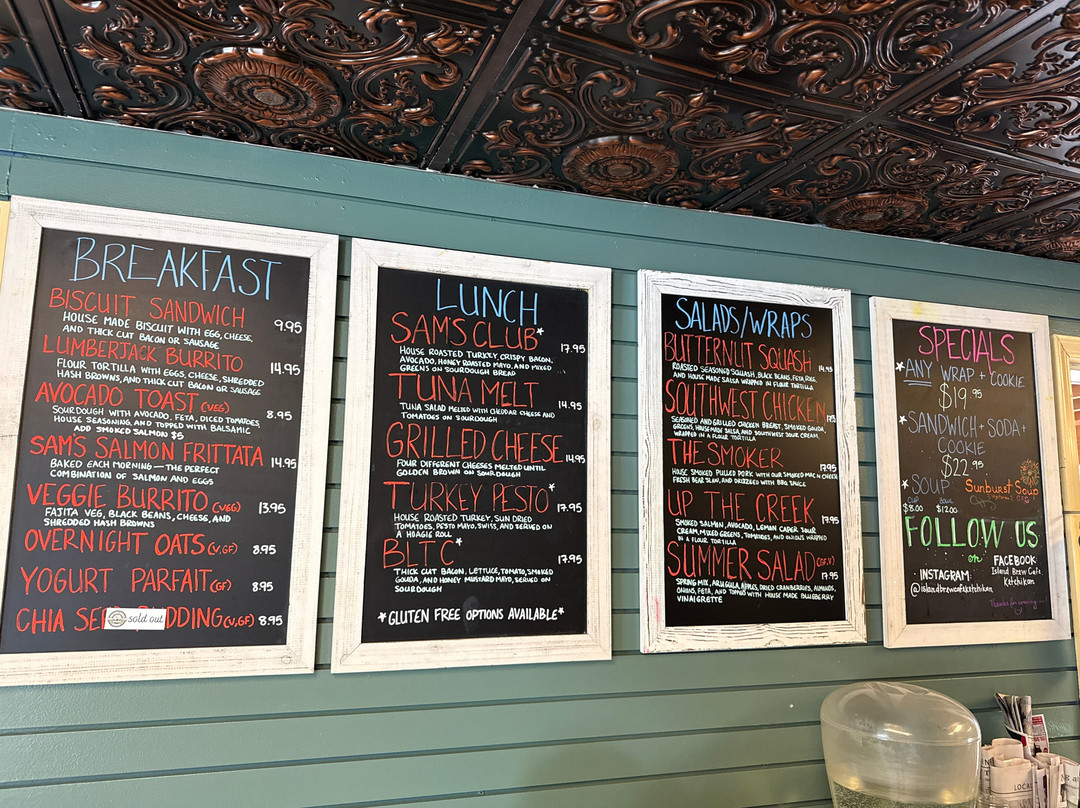 BREAKFAST
BISCUIT SANDWICH 9.95
HOUSE MADE BISCUIT WITH EGG, CHEESE,
AND THICK CUT BACON OR SAUSAGE
LUMBERJACK BURRITO 14.95
FLOUR TORTILLA WITH EGGS, CHEESE, SHREDDED
HASH BROWNS, AND THICK CUT BACON OR SAUSAGE
AVOCADO TOAST (VEG) 8.95
SOURDOUGH WITH AVOCADO, FETA, DICED TOMATOES,
HOUSE SEASONING, AND TOPPED WITH BALSAMIC
ADD SMOKED SALMON $5
SAM'S SALMON FRITTATA 14.95
BAKED EACH MORNING — THE PERFECT
COMBINATION OF SALMON AND EGGS
VEGGIE BURRITO (VEG) 13.95
FAJITA VEG, BLACK BEANS, CHEESE, AND
SHREDDED HASH BROWNS
OVERNIGHT OATS (V,GF) 8.95
YOGURT PARFAIT (GF) 8.95
CHIA SE sold out DDING (V,GF) 8.95
LUNCH
SAM'S CLUB* 17.95
HOUSE ROASTED TURKEY, CRISPY BACON,
AVOCADO, HONEY ROASTED MAYO, AND MIXED
GREENS ON SOURDOUGH BREAD
TUNA MELT 14.95
TUNA SALAD MELTED WITH CHEDDAR CHEESE AND
TOMATOES ON SOURDOUGH
GRILLED CHEESE 14.95
FOUR DIFFERENT CHEESES MELTED UNTIL
GOLDEN BROWN ON SOURDOUGH
TURKEY PESTO* 17.95
HOUSE ROASTED TURKEY, SUN DRIED
TOMATOES, PESTO MAYO, SWISS, AND SERVED ON
A HOAGIE ROLL
BLTC* 17.95
THICK CUT BACON, LETTUCE, TOMATO, SMOKED
GOUDA, AND HONEY MUSTARD MAYO, SERVED ON
SOURDOUGH
*GLUTEN FREE OPTIONS AVAILABLE*
SALADS/WRAPS
BUTTERNUT SQUASH 14.95
ROASTED SEASONED SQUASH, BLACK BEANS, FETA, RICE,
AND HOUSE MADE SALSA WRAPPED IN FLOUR TORTILLA
SOUTHWEST CHICKEN
SEASONED AND GRILLED CHICKEN BREAST, SMOKED GOUDA
GREENS, HOUSEMADE SALSA, AND SOUTHWEST SOUR CREAM,
WRAPPED IN A FLOUR TORTILLA
THE SMOKER 17.95
HOUSE SMOKED PULLED PORK WITH OUR SMOKED MAC N CHEESE
FRESH BEAR SLAW, AND DRIZZLED WITH BBQ SAUCE
UP THE CREEK 17.95
SMOKED SALMON, AVOCADO, LEMON CAPER SOUR
CREAM, MIXED GREENS, TOMATOES, AND ONIONS WRAPPED
IN A FLOUR TORTILLA
SUMMER SALAD (GF,V) 17.95
SPRING MIX, ARUGULA, APPLES, DRIED CRANBERRIES, ALMONDS,
ONIONS, FETA, AND TOPPED WITH HOUSE MADE BLUEBERRY
VINAIGRETTE
SPECIALS
*ANY WRAP + COOKIE
$19.95
*SANDWICH + SODA +
COOKIE
$22.95
*SOUP - Sunburst Soup
CUP
$8.00 $12.00
FOLLOW US
on FACEBOOK
Island Brew Cafe
Ketchikan
INSTAGRAM:
@islandbrewcafeketchikan
Thanks for
LOCAL